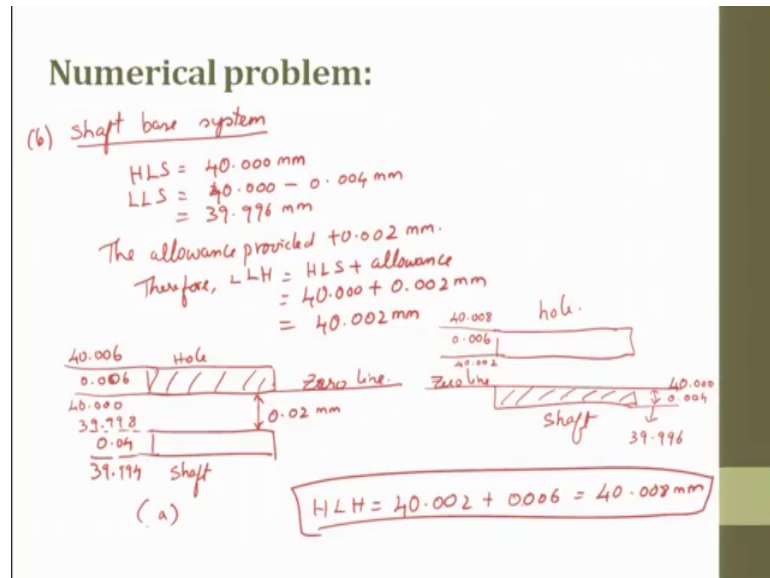 Numerical problem:
(b) Shaft base system
HLS = 40.000 mm
LLS = 40.000 - 0.004 mm
= 39.996 mm
The allowance provided +0.002 mm.
Therefore, LLH = HLS + allowance
= 40.000 + 0.002 mm
= 40.002 mm
40.008 hole.
0.006
40.002
Zero line 40.000
0.004
Shaft
39.996
40.006 Hole
0.006 Zero line.
40.000
39.998 0.02 mm
0.04
39.994 Shaft
(a)
HLH = 40.002 + 0006 = 40.008 mm